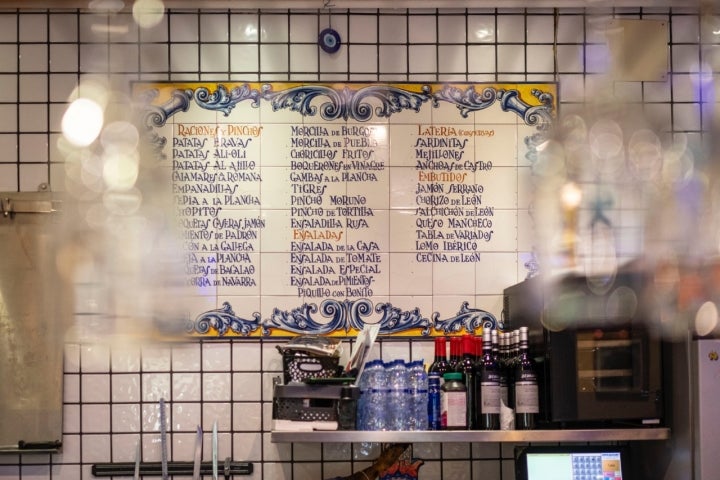 Raciones y Pinchos
Patatas Bravas
Patatas Ali-oli
Patatas Al Ajillo
Calamares a la Romana
Empanadillas
Sepia a la Plancha
Chopitos
Croquetas Caseras Jamón
Pimientos de Padrón
a la Gallega
a la Plancha
de Bacalao
de Navarra
Morcilla de Burgos
Morcilla de Puebla
Choricillos Fritos
Boquerones en Vinagre
Gambas a la Plancha
Tigres
Pincho Moruno
Pincho de Tortilla
Ensaladilla Rusa
Ensaladas
Ensalada de la Casa
Ensalada de Tomate
Ensalada Especial
Ensalada de Pimientos-
Piquillo con Bonito
Latería
Sardinitas
Mejillones
Anchoas de Castro
Embutidos
Jamón Serrano
Chorizo de León
Salchichón de León
Queso Manchego
Tabla de Variados
Lomo Ibérico
Cecina de León